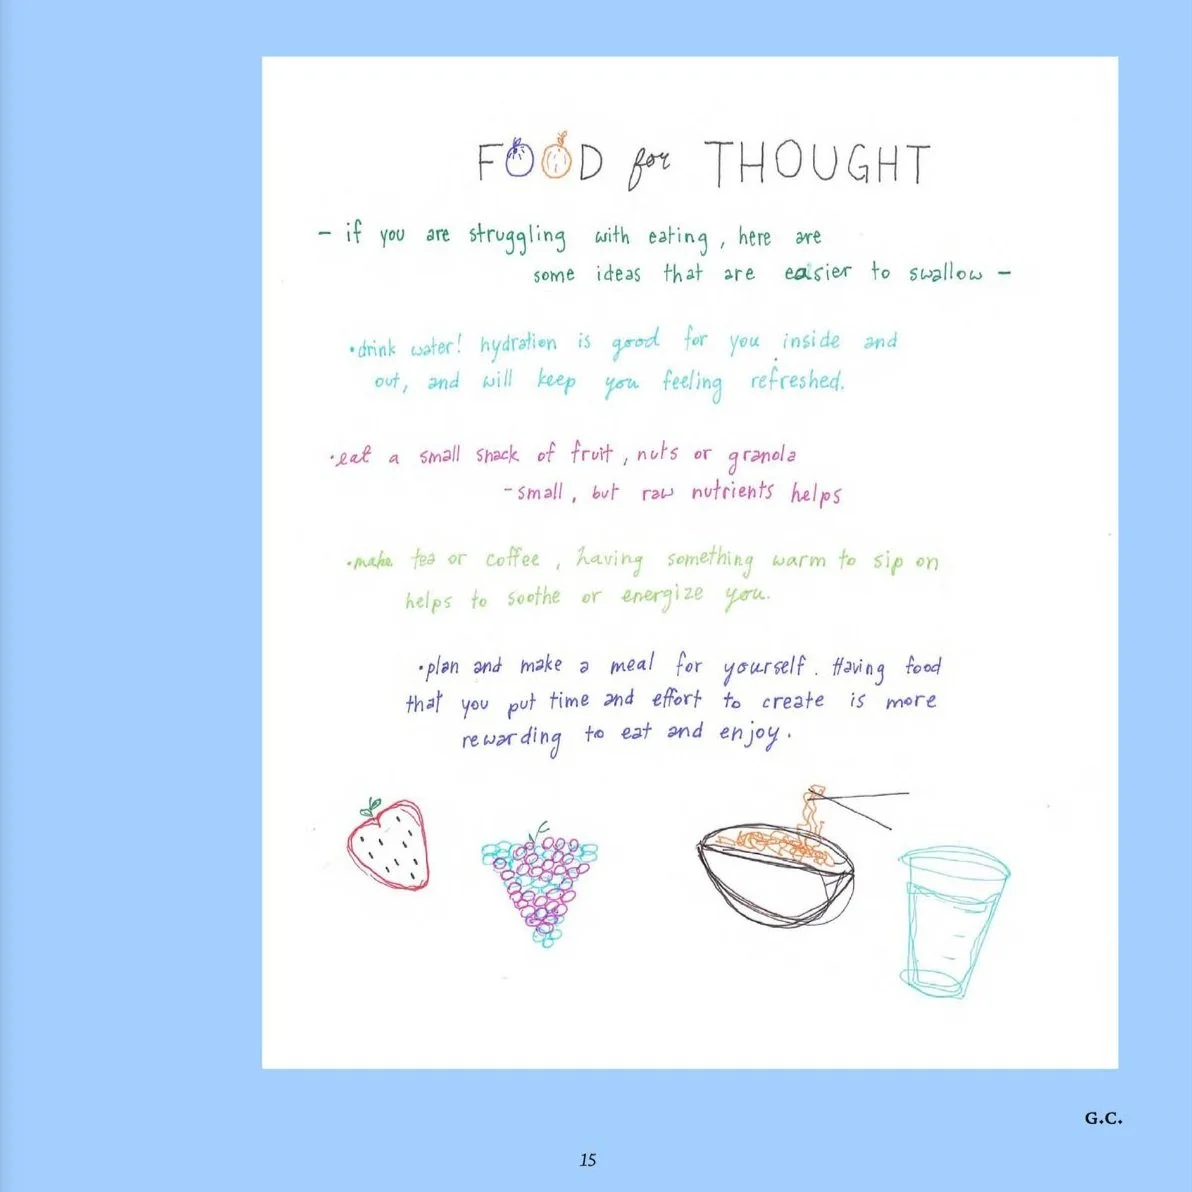 FOOD for THOUGHT
- if you are struggling with eating, here are
some ideas that are easier to swallow -
•drink water! hydration is good for you inside and
out, and will keep you feeling refreshed.
•eat a small snack of fruit, nuts or granola
-small, but raw nutrients helps
•make tea or coffee, having something warm to sip on
helps to soothe or energize you.
•plan and make a meal for yourself. Having food
that you put time and effort to create is more
rewarding to eat and enjoy.
G.C.
15